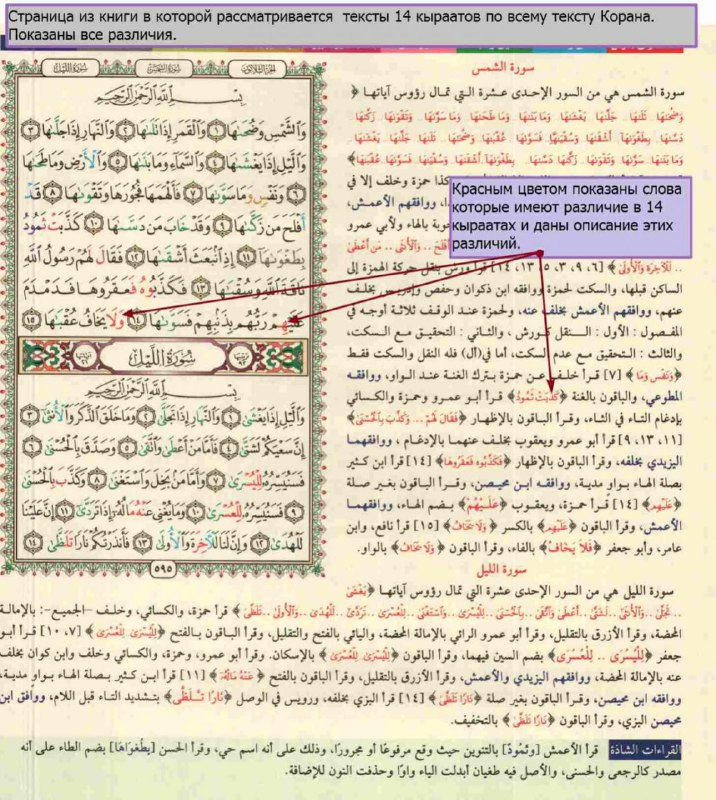 Страница из книги в которой рассматривается тексты 14 кыраатов по всему тексту Корана.
Показаны все различия.
سورة الشمس
سورة الشمس هي من السور الإحدى عشرة التي تمال رؤوس آياتها ﴿
Красным цветом показаны слова
которые имеют различие в 14
кыраатах и даны описание этих
различий.
.. لِلْآخِرَةَ وَالْأُولَىٰ﴾ [٦، ٩، ٣، ٥، ١٣، ١٤] قرأ ورش بنقل حركة الهمزة إلى
الساكن قبلها، والسكت لحمزة ووافقه ابن ذكوان وحفص وإدريس بخلف
عنهم، ووافقهم الأعمش بخلف عنه، ولحمزة عند الوقف ثلاثة أوجه في
المفصول : الأول : النقل كورش ، والثاني : التحقيق مع السكت،
والثالث : التحقيق مع عدم السكت، أما في(أل) فله النقل والسكت فقط
﴿وَنَفْسٍ وَمَا﴾ [٧] قرأ خلف عن حمزة بترك الغنة عند الواو، ووافقه
المطوعي، والباقون بالغنة ﴿كَذَّبَتْ ثَمُودُ﴾ قرأ أبو عمرو وحمزة والكسائي
بإدغام التاء في الثاء، وقرأ الباقون بالإظهار ﴿فَقَالَ لَهُمْ .. وَكَذَّبَ بِالْحُسْنَىٰ﴾
[١١، ١٣، ٩] قرأ أبو عمرو ويعقوب بخلف عنهما بالإدغام ، ووافقهما
اليزيدي بخلفه، وقرأ الباقون بالإظهار ﴿فَكَذَّبُوهُ فَعَقَرُوهَا﴾ [١٤] قرأ ابن كثير
بصلة الهاء بواو مدية، ووافقه ابن محيصن، وقرأ الباقون بغير صلة
﴿عَلَيْهِم﴾ [١٤] قرأ حمزة، ويعقوب ﴿عَلَيْهُمْ﴾ بضم الهاء، ووافقهما
الأعمش، وقرأ الباقون ﴿عَلَيْهِم﴾ بالكسر ﴿وَلَا يَخَافُ﴾ [١٥] قرأ نافع، وابن
عامر، وأبو جعفر ﴿فَلَا يَخَافُ﴾ بالفاء، وقرأ الباقون ﴿وَلَا يَخَافُ﴾ بالواو.
سورة الليل
سورة الليل هي من السور الإحدى عشرة التي تمال رؤوس آياتها ﴿يَغْشَىٰ
قرأ حمزة، والكسائي، وخلف –الجميع–: بالإمالة
المحضة، وقرأ الأزرق بالتقليل، وقرأ أبو عمرو الرائي بالإمالة المحضة، واليائي بالفتح والتقليل، وقرأ الباقون بالفتح ﴿لِلْيُسْرَىٰ لِلْعُسْرَىٰ﴾ [٧، ١٠] قرأ أبو
جعفر ﴿لِلْيُسُرَىٰ .. لِلْعُسُرَىٰ﴾ بضم السين فيهما، وقرأ الباقون ﴿لِلْيُسْرَىٰ لِلْعُسْرَىٰ﴾ بالإسكان. وقرأ أبو عمرو، وحمزة، والكسائي وخلف وابن ذكوان بخلف
عنه بالإمالة المحضة، ووافقهم اليزيدي والأعمش، وقرأ الأزرق بالتقليل، وقرأ الباقون بالفتح ﴿عَنْهُ مَالُهُ﴾ [١١] قرأ ابن كثير بصلة الهاء بواو مدية،
ووافقه ابن محيصن، وقرأ الباقون بغير صلة ﴿نَارًا تَلَظَّىٰ﴾ [١٤] قرأ البزي بخلفه، ورويس في الوصل ﴿نَارًا تَّلَظَّىٰ﴾ بتشديد التاء قبل اللام، ووافق ابن
محيصن البزي، وقرأ الباقون ﴿نَارًا تَلَظَّىٰ﴾ بالتخفيف.
القراءات الشاذة قرأ الأعمش [وثمودٌ] بالتنوين حيث وقع مرفوعًا أو مجرورًا، وذلك على أنه اسم حي، وقرأ الحسن [بِطُغواهَا] بضم الطاء على أنه
مصدر كالرجعى والحسنى، والأصل فيه طغيان أبدلت الياء واوًا وحذفت النون للإضافة.
بِسْمِ اللَّهِ الرَّحْمَٰنِ الرَّحِيمِ
وَالشَّمْسِ وَضُحَىٰهَا ١ وَالْقَمَرِ إِذَا تَلَىٰهَا ٢ وَالنَّهَارِ إِذَا جَلَّىٰهَا ٣
وَاللَّيْلِ إِذَا يَغْشَىٰهَا ٤ وَالسَّمَاءِ وَمَا بَنَىٰهَا ٥ وَالْأَرْضِ وَمَا طَحَىٰهَا
٦ وَنَفْسٍ وَمَا سَوَّىٰهَا ٧ فَأَلْهَمَهَا فُجُورَهَا وَتَقْوَىٰهَا ٨ قَدْ
أَفْلَحَ مَن زَكَّىٰهَا ٩ وَقَدْ خَابَ مَن دَسَّىٰهَا ١٠ كَذَّبَتْ ثَمُودُ
بِطَغْوَىٰهَا ١١ إِذِ انبَعَثَ أَشْقَىٰهَا ١٢ فَقَالَ لَهُمْ رَسُولُ اللَّهِ
نَاقَةَ اللَّهِ وَسُقْيَٰهَا ١٣ فَكَذَّبُوهُ فَعَقَرُوهَا فَدَمْدَمَ
عَلَيْهِمْ رَبُّهُم بِذَنبِهِمْ فَسَوَّىٰهَا ١٤ وَلَا يَخَافُ عُقْبَٰهَا ١٥
سُورَةُ اللَّيْلِ
بِسْمِ اللَّهِ الرَّحْمَٰنِ الرَّحِيمِ
وَاللَّيْلِ إِذَا يَغْشَىٰ ١ وَالنَّهَارِ إِذَا تَجَلَّىٰ ٢ وَمَا خَلَقَ الذَّكَرَ وَالْأُنثَىٰ ٣
إِنَّ سَعْيَكُمْ لَشَتَّىٰ ٤ فَأَمَّا مَنْ أَعْطَىٰ وَاتَّقَىٰ ٥ وَصَدَّقَ بِالْحُسْنَىٰ ٦
فَسَنُيَسِّرُهُ لِلْيُسْرَىٰ ٧ وَأَمَّا مَن بَخِلَ وَاسْتَغْنَىٰ ٨ وَكَذَّبَ بِالْحُسْنَىٰ
٩ فَسَنُيَسِّرُهُ لِلْعُسْرَىٰ ١٠ وَمَا يُغْنِي عَنْهُ مَالُهُ إِذَا تَرَدَّىٰ ١١ إِنَّ عَلَيْنَا
لَلْهُدَىٰ ١٢ وَإِنَّ لَنَا لَلْآخِرَةَ وَالْأُولَىٰ ١٣ فَأَنذَرْتُكُمْ نَارًا تَلَظَّىٰ ١٤
٥٩٥